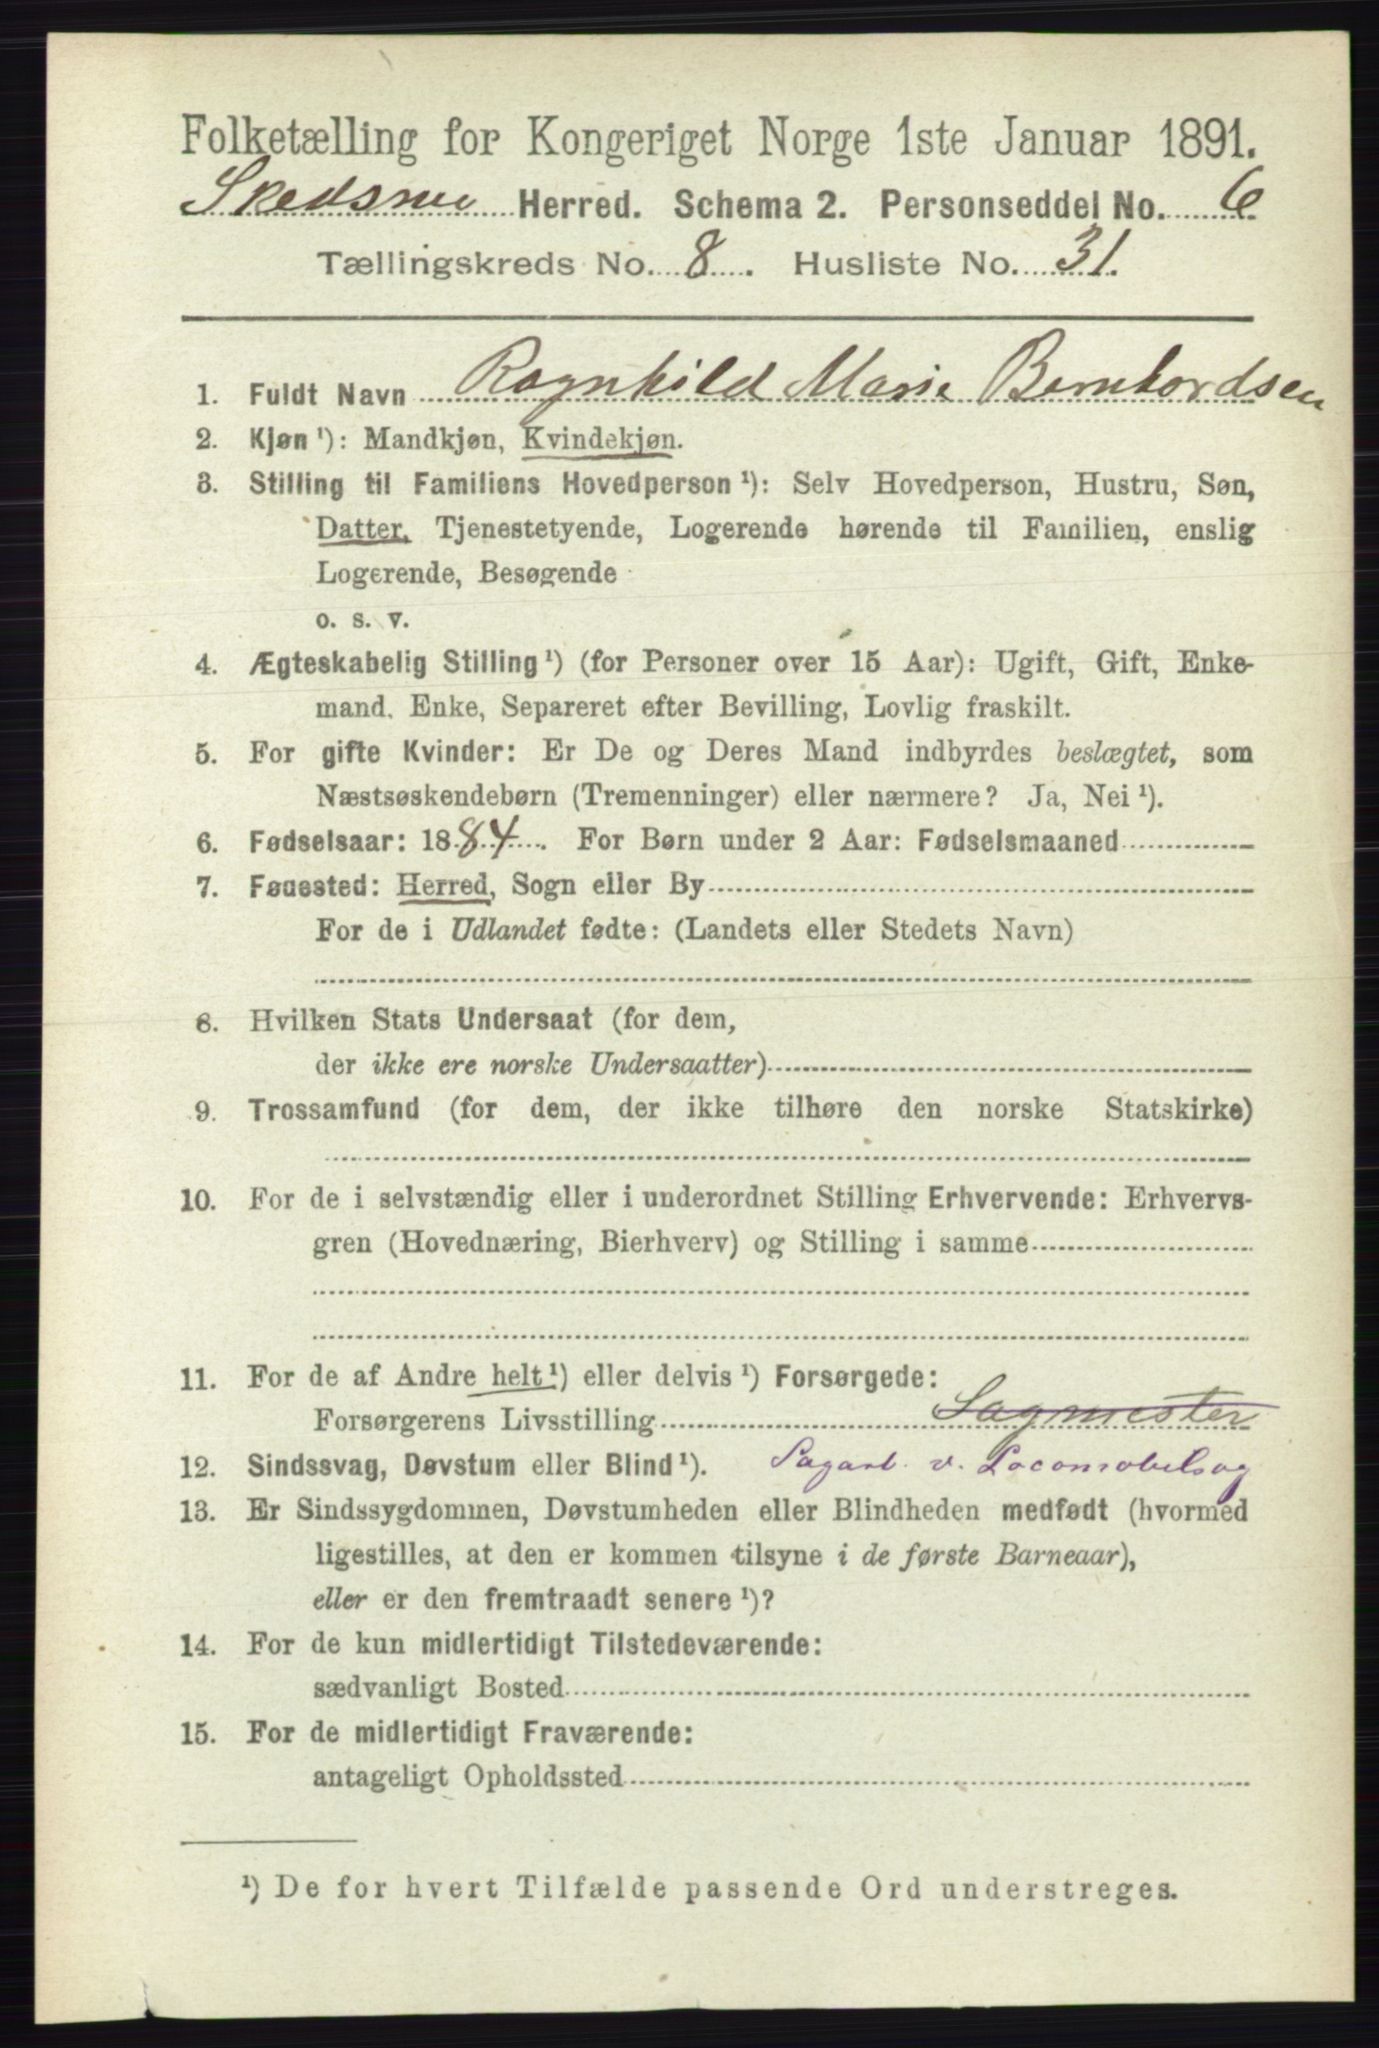 Folketælling for Kongeriget Norge 1ste Januar 1891.
Skedsmo Herred. Schema 2. Personseddel No. 6
Tællingskreds No. 8. Husliste No. 31.
1. Fuldt Navn Ragnhild Marie Bernhardsen
2. Kjøn ¹): Mandkjøn, Kvindekjøn.
3. Stilling til Familiens Hovedperson ¹): Selv Hovedperson, Hustru, Søn,
Datter, Tjenestetyende, Logerende hørende til Familien, enslig
Logerende, Besøgende
o. s. v.
4. Ægteskabelig Stilling ¹) (for Personer over 15 Aar): Ugift, Gift, Enke-
mand, Enke, Separeret efter Bevilling, Lovlig fraskilt.
5. For gifte Kvinder: Er De og Deres Mand indbyrdes beslægtet, som
Næstsøskendebørn (Tremenninger) eller nærmere? Ja, Nei ¹).
6. Fødselsaar: 1884. For Børn under 2 Aar: Fødselsmaaned
7. Fødested: Herred, Sogn eller By
For de i Udlandet fødte: (Landets eller Stedets Navn)
8. Hvilken Stats Undersaat (for dem,
der ikke ere norske Undersaatter)
9. Trossamfund (for dem, der ikke tilhøre den norske Statskirke)
10. For de i selvstændig eller i underordnet Stilling Erhvervende: Erhvervs-
gren (Hovednæring, Bierhverv) og Stilling i samme
11. For de af Andre helt ¹) eller delvis ¹) Forsørgede:
Forsørgerens Livsstilling Sagmester
12. Sindssvag, Døvstum eller Blind ¹). Sagarb. v. Locomobilsag
13. Er Sindssygdommen, Døvstumheden eller Blindheden medfødt (hvormed
ligestilles, at den er kommen tilsyne i de første Barneaar),
eller er den fremtraadt senere ¹)?
14. For de kun midlertidigt Tilstedeværende:
sædvanligt Bosted
15. For de midlertidigt Fraværende:
antageligt Opholdssted
¹) De for hvert Tilfælde passende Ord understreges.